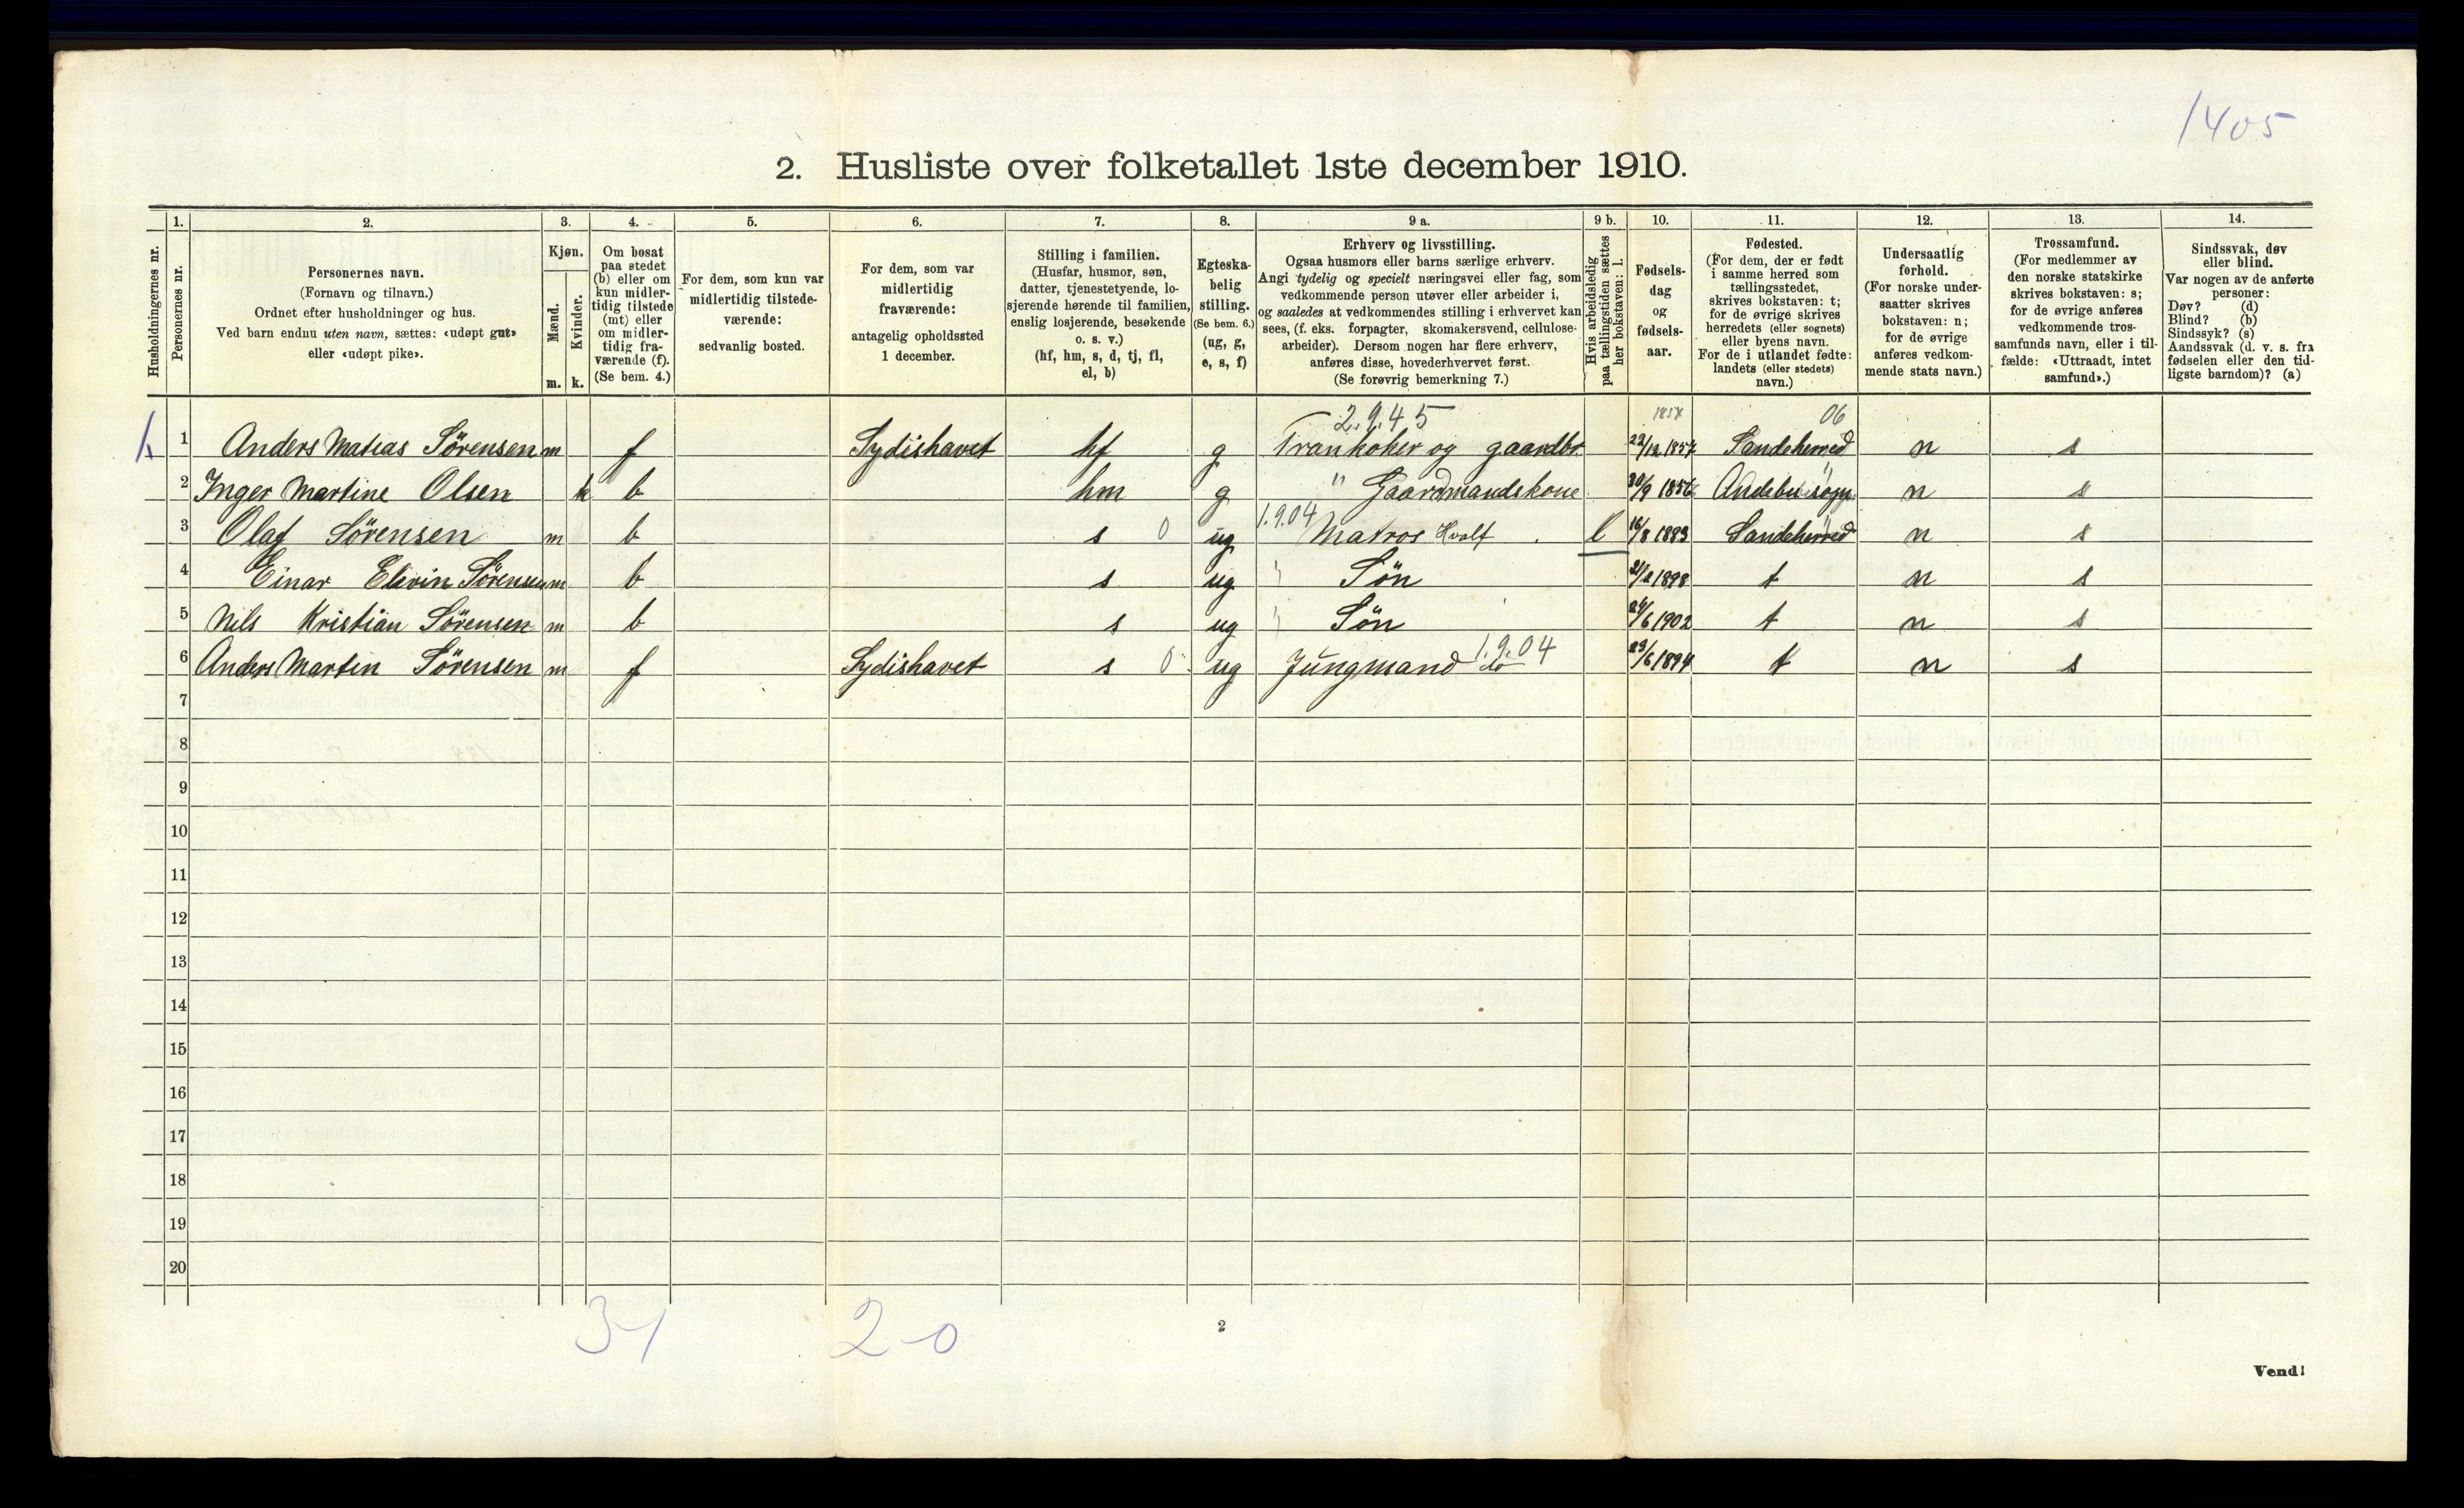 1405
2. Husliste over folketallet 1ste december 1910.
Husholdningernes nr.
1. Personernes nr.
2. Personernes navn. (Fornavn og tilnavn.) Ordnet efter husholdninger og hus. Ved barn endnu uten navn, sættes: «udøpt gut» eller «udøpt pike».
3. Kjøn. Mænd. m. Kvinder. k.
4. Om bosat paa stedet (b) eller om kun midlertidig tilstede (mt) eller om midlertidig fraværende (f). (Se bem. 4.)
5. For dem, som kun var midlertidig tilstedeværende: sedvanlig bosted.
6. For dem, som var midlertidig fraværende: antagelig opholdssted 1 december.
7. Stilling i familien. (Husfar, husmor, søn, datter, tjenestetyende, losjerende hørende til familien, enslig losjerende, besøkende o. s. v.) (hf, hm, s, d, tj, fl, el, b)
8. Egteskabelig stilling. (Se bem. 6.) (ug, g, e, s, f)
9 a. Erhverv og livsstilling. Ogsaa husmors eller barns særlige erhverv. Angi tydelig og specielt næringsvei eller fag, som vedkommende person utøver eller arbeider i, og saaledes at vedkommendes stilling i erhvervet kan sees, (f. eks. forpagter, skomakersvend, cellulosearbeider). Dersom nogen har flere erhverv, anføres disse, hovederhvervet først. (Se forøvrig bemerkning 7.)
9 b. Hvis arbeidsledig paa tællingstiden sættes her bokstaven: l.
10. Fødselsdag og fødselsaar.
11. Fødested. (For dem, der er født i samme herred som tællingsstedet, skrives bokstaven: t; for de øvrige skrives herredets (eller sognets) eller byens navn. For de i utlandet fødte: landets (eller stedets) navn.)
12. Undersaatlig forhold. (For norske undersaatter skrives bokstaven: n; for de øvrige anføres vedkommende stats navn.)
13. Trossamfund. (For medlemmer av den norske statskirke skrives bokstaven: s; for de øvrige anføres vedkommende trossamfunds navn, eller i tilfælde: «Uttraadt, intet samfund».)
14. Sindssvak, døv eller blind. Var nogen av de anførte personer: Døv? (d) Blind? (b) Sindssyk? (s) Aandssvak (d. v. s. fra fødselen eller den tidligste barndom)? (a)
2.9.45 1857 06
1 Anders Matias Sørensen m f Sydishavet hf g Trankoker og gaardbr. 22/12 1857 Sandeherred n s
2 Inger Martine Olsen k b hm g " Gaardmandskone 30/9 1856 Andebu sogn n s
3 Olaf Sørensen m b s 0 ug 1.9.04 Matros Hvalf l 16/8 1883 Sandeherred n s
4 Einar Elevin Sørensen m b s ug " Søn 21/2 1898 t n s
5 Nils Kristian Sørensen m b s ug " Søn 24/6 1902 t n s
6 Anders Martin Sørensen m f Sydishavet s 0 ug Jungmand do 1.9.04 23/6 1894 t n s
7
8
9
10
11
12
13
14
15
16
17
18
19
20
3-1 2-0
2
Vend!